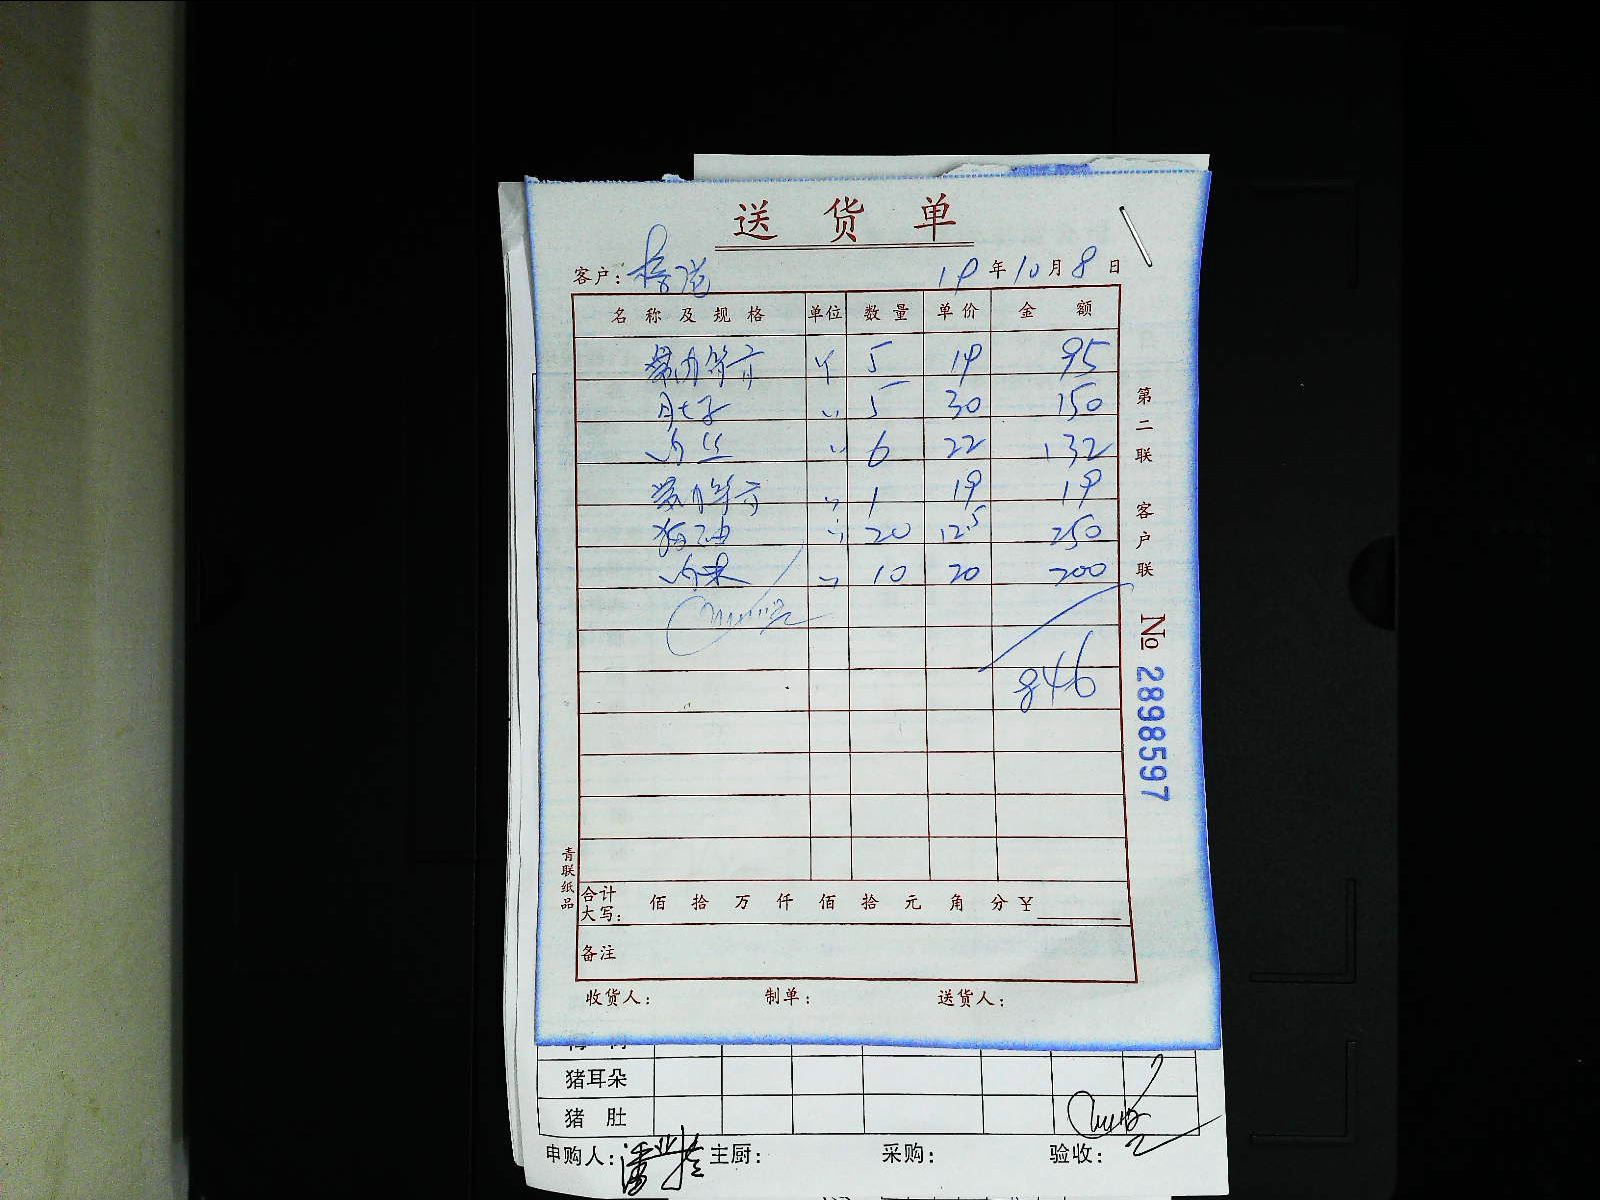 送货单
客户: 19年10月8日
名称及规格 单位 数量 单价 金额
5 19 95
肚子 〃 5 30 150
肉丝 〃 6 22 132
〃 1 19 19
猪油 〃 20 12.5 250
肉末 〃 10 20 200
846
合计大写: 佰 拾 万 仟 佰 拾 元 角 分 ¥
备注
收货人: 制单: 送货人:
第二联 客户联
№ 2898597
青联纸品
猪耳朵
猪肚
申购人: 主厨: 采购: 验收: